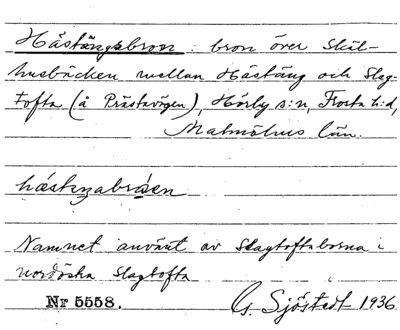 Hästängsbron : bron över Skäl-
husbäcken mellan Hästäng och Slag-
tofta (å Prästavägen), Hörby s:n, Frosta h:d,
Malmöhus län.
Namnet använt av Slagtoftaborna i
nordöstra Slagtofta
Nr 5558. G. Sjöstedt 1936